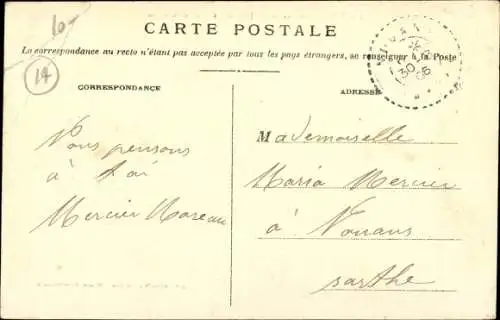 10-
14
CARTE POSTALE
La correspondance au recto n'étant pas acceptée par tous les pays étrangers, se renseigner à la Poste
CORRESPONDANCE
ADRESSE
30
06
Nous pensons
à toi
Mercier Moreau
Mademoiselle
Maria Mercier
à Nouans
sarthe